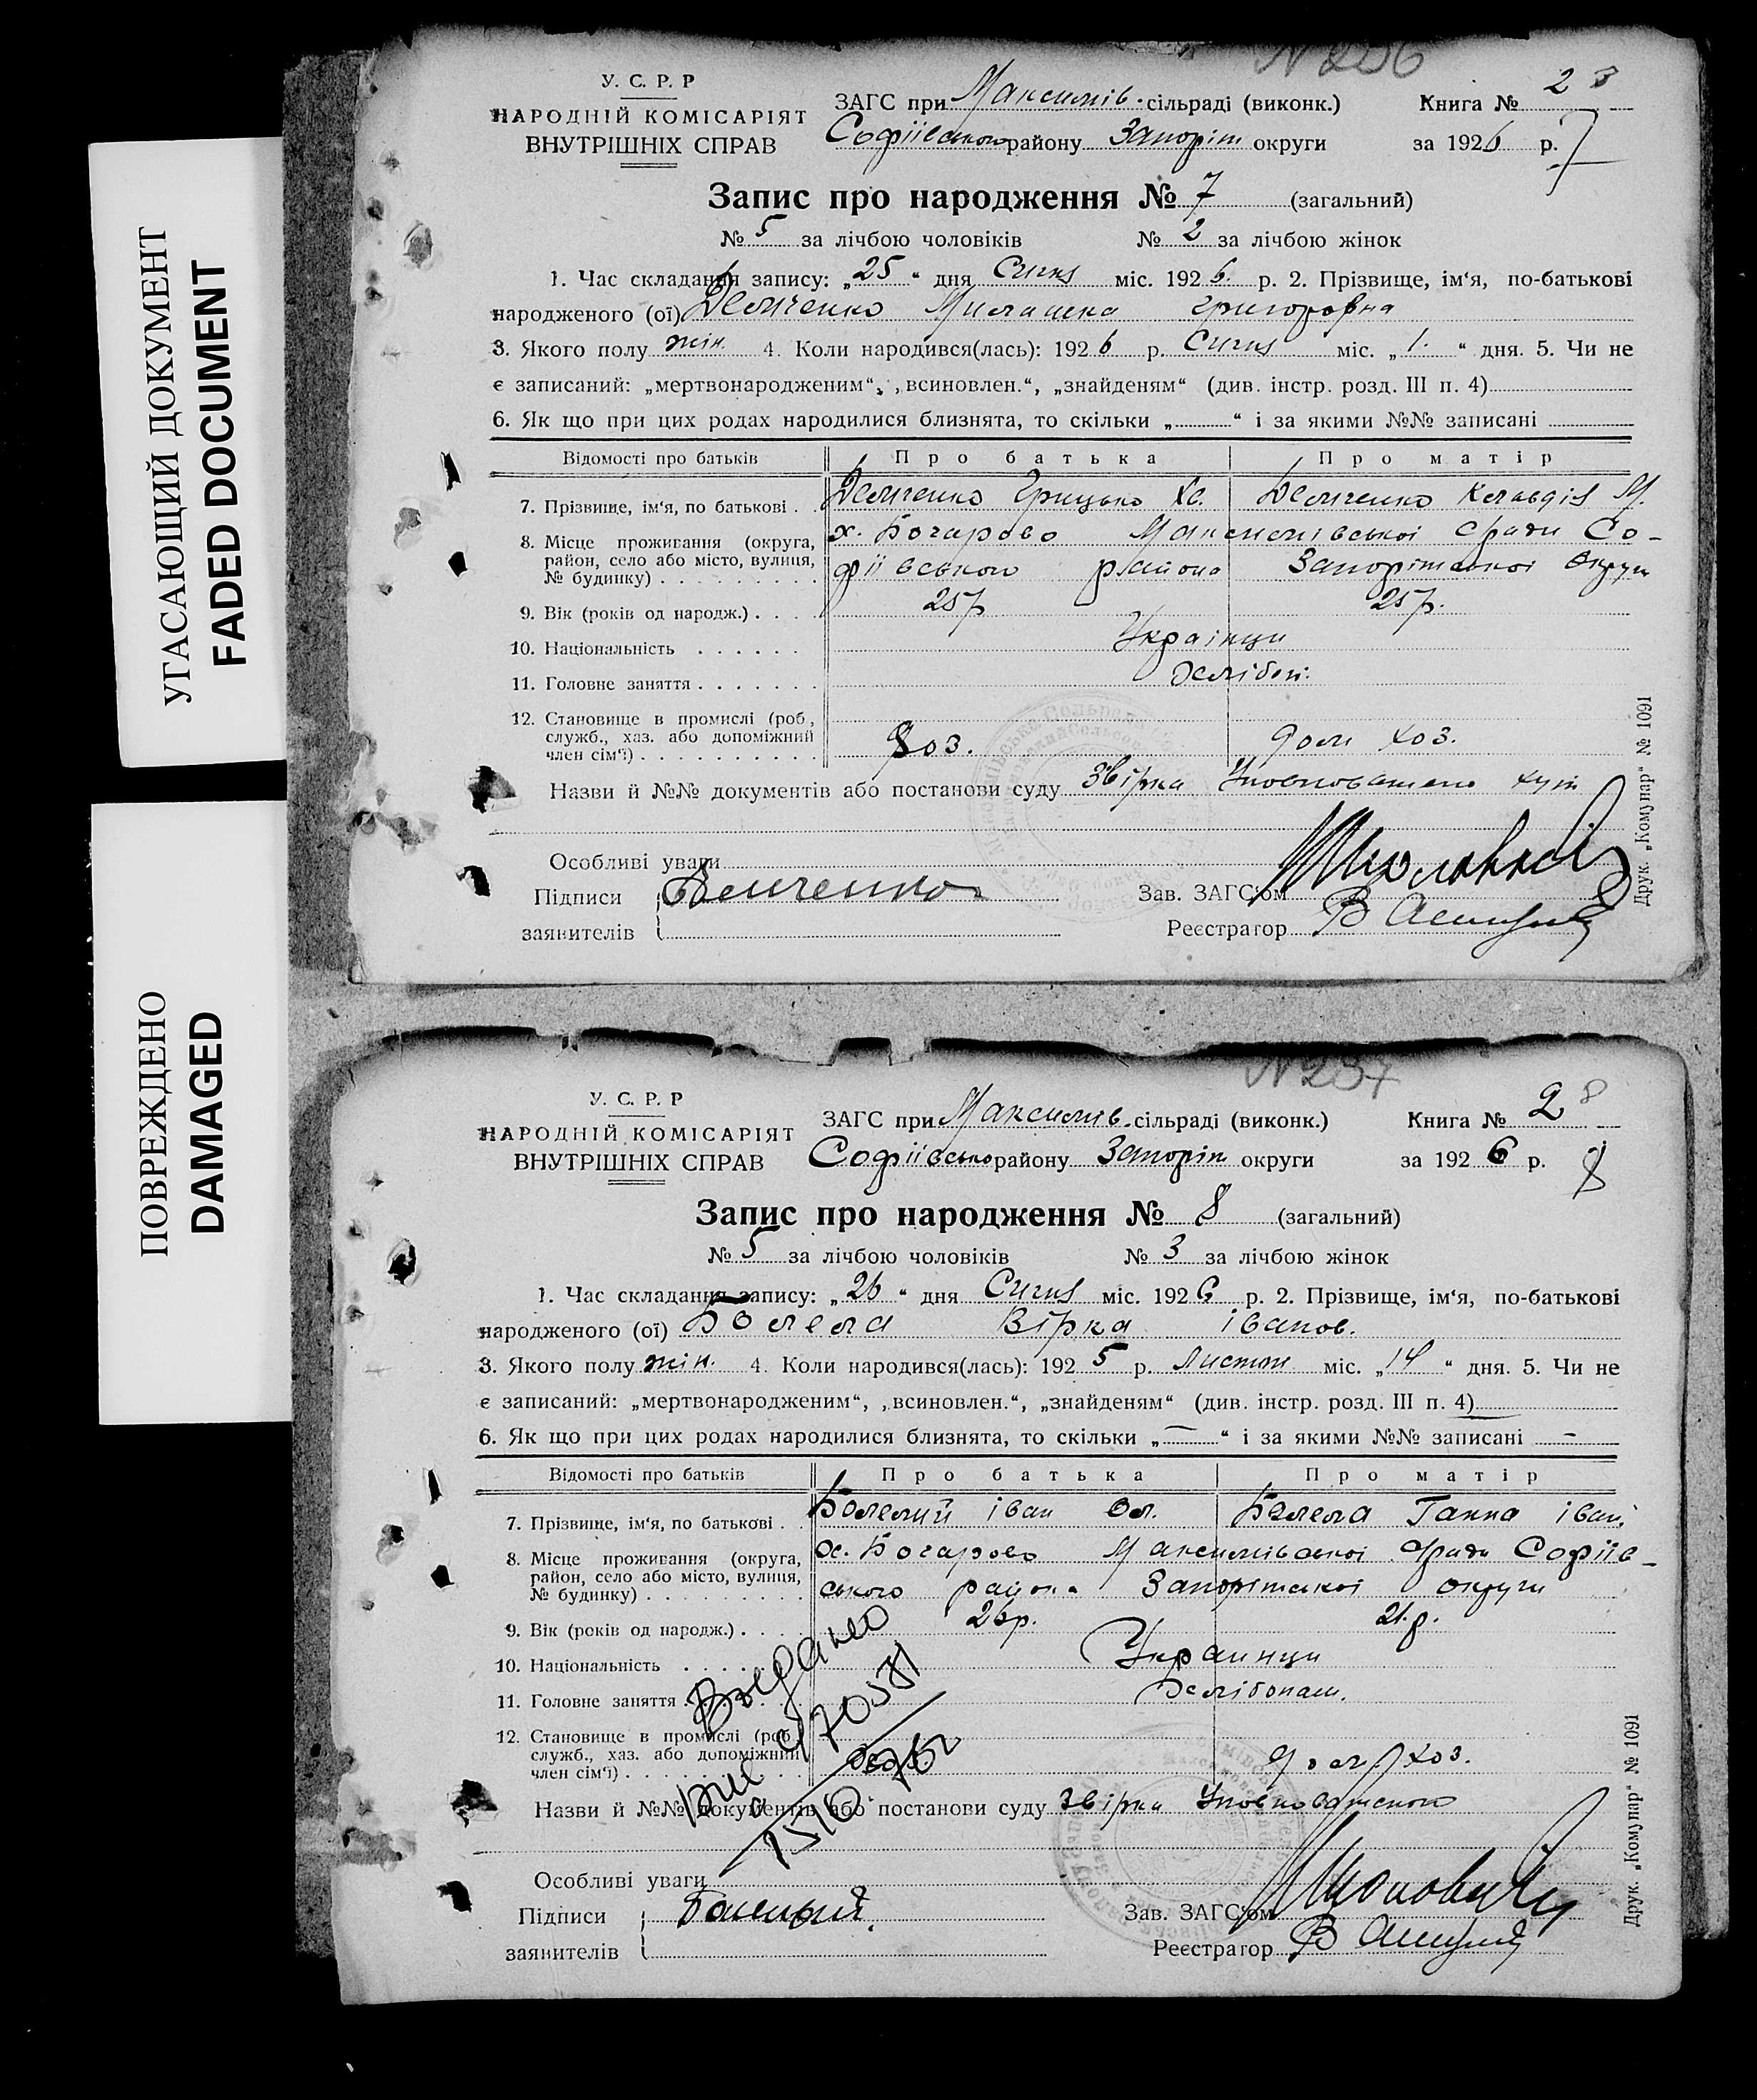 УГАСАЮЩИЙ ДОКУМЕНТ
FADED DOCUMENT
ПОВРЕЖДЕНО
DAMAGED
N 236
У. С. Р. Р
НАРОДНІЙ КОМІСАРІЯТ
ВНУТРІШНІХ СПРАВ
ЗАГС при Максимів. сільраді (виконк.)
Софіївського району Запоріж округи
Книга № 2
за 1926 р. 7
Запис про народження № 7 (загальний)
№ 5 за лічбою чоловіків № 2 за лічбою жінок
1. Час складання запису: „25“ дня Січня міс. 1926. р. 2. Прізвище, ім‘я, по-батькові
народженого (ої) Демченко Григоровна
3. Якого полу жін. 4. Коли народився(лась): 1926 р. Січня міс. „1.“ дня. 5. Чи не
є записаний: „мертвонародженим“, „всиновлен.“, „знайденям“ (див. інстр. розд. III п. 4)
6. Як що при цих родах народилися близнята, то скільки „ “ і за якими №№ записані
Відомості про батьків Про батька Про матір
7. Прізвище, ім‘я, по батькові . . Демченко Грицько Демченко Клавдія М.
8. Місце проживання (округа, район, село або місто, вулиця, № будинку) . . . . . . . . . х. Бочарово Максимівської с/ради Со-
фіївського района Запоріжської Округи
9. Вік (років од народж.) . . . . 25р 25р.
10. Національність . . . . . . Українци
11. Головне заняття . . . . . . . Хлібоп.
12. Становище в промислі (роб., служб., хаз. або допоміжний член сім‘ї) . . . . . . . . . . хоз. дом хоз.
Назви й №№ документів або постанови суду Звірка Уповноважено хут
Особливі уваги
Підписи Демченко
заявителів
Зав. ЗАГС‘ом
Реєстратор
Друк. „Комунар“ № 1091
N 237
У. С. Р. Р
НАРОДНІЙ КОМІСАРІЯТ
ВНУТРІШНІХ СПРАВ
ЗАГС при Максимів. сільраді (виконк.)
Софіївського району Запоріж округи
Книга № 2 8
за 1926 р. 8
Запис про народження № 8 (загальний)
№ 5 за лічбою чоловіків № 3 за лічбою жінок
1. Час складання запису: „26“ дня Січня міс. 1926 р. 2. Прізвище, ім‘я, по-батькові
народженого (ої) Болема Вірка Іванов.
3. Якого полу жін. 4. Коли народився(лась): 1925 р. Листоп міс. „14“ дня. 5. Чи не
є записаний: „мертвонародженим“, „всиновлен.“, „знайденям“ (див. інстр. розд. III п. 4)
6. Як що при цих родах народилися близнята, то скільки „—“ і за якими №№ записані —
Відомості про батьків Про батька Про матір
7. Прізвище, ім‘я, по батькові . . Болемий Іван Ол. Болема Ганна Іван.
8. Місце проживання (округа, район, село або місто, вулиця, № будинку) . . . . . . . . . х. Бочарово Максимівської с/ради Софіїв-
ського района Запоріжської округи
9. Вік (років од народж.) . . . . 26р. 21.р.
10. Національність . . . . . . Украинци
11. Головне заняття . . . . . . . Хлібопаш.
12. Становище в промислі (роб., служб., хаз. або допоміжний член сім‘ї) . . . . . . . . . . дом хоз.
Назви й №№ документів або постанови суду Звірка Уповноваженого
Особливі уваги
Підписи
заявителів
Зав. ЗАГС‘ом
Реєстратор
Друк. „Комунар“ № 1091